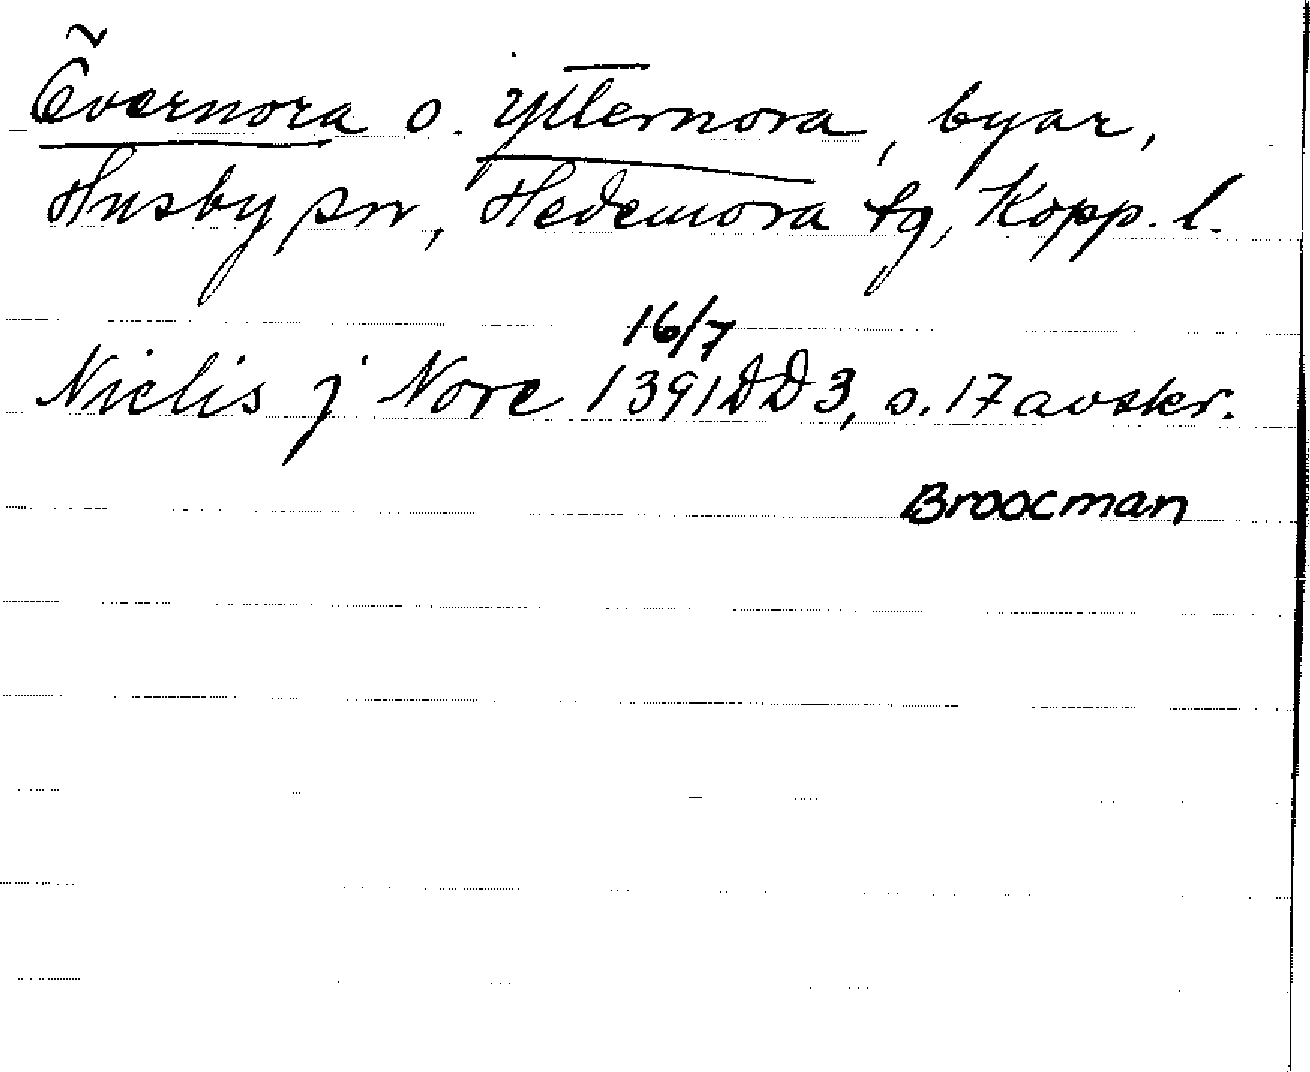 Övernora o. Ytternora, byar,
Husby sn, Hedemora tg, Kopp. l.
16/7
Niclis j Nore 1391 DD 3, s. 17 avskr.
Broocman